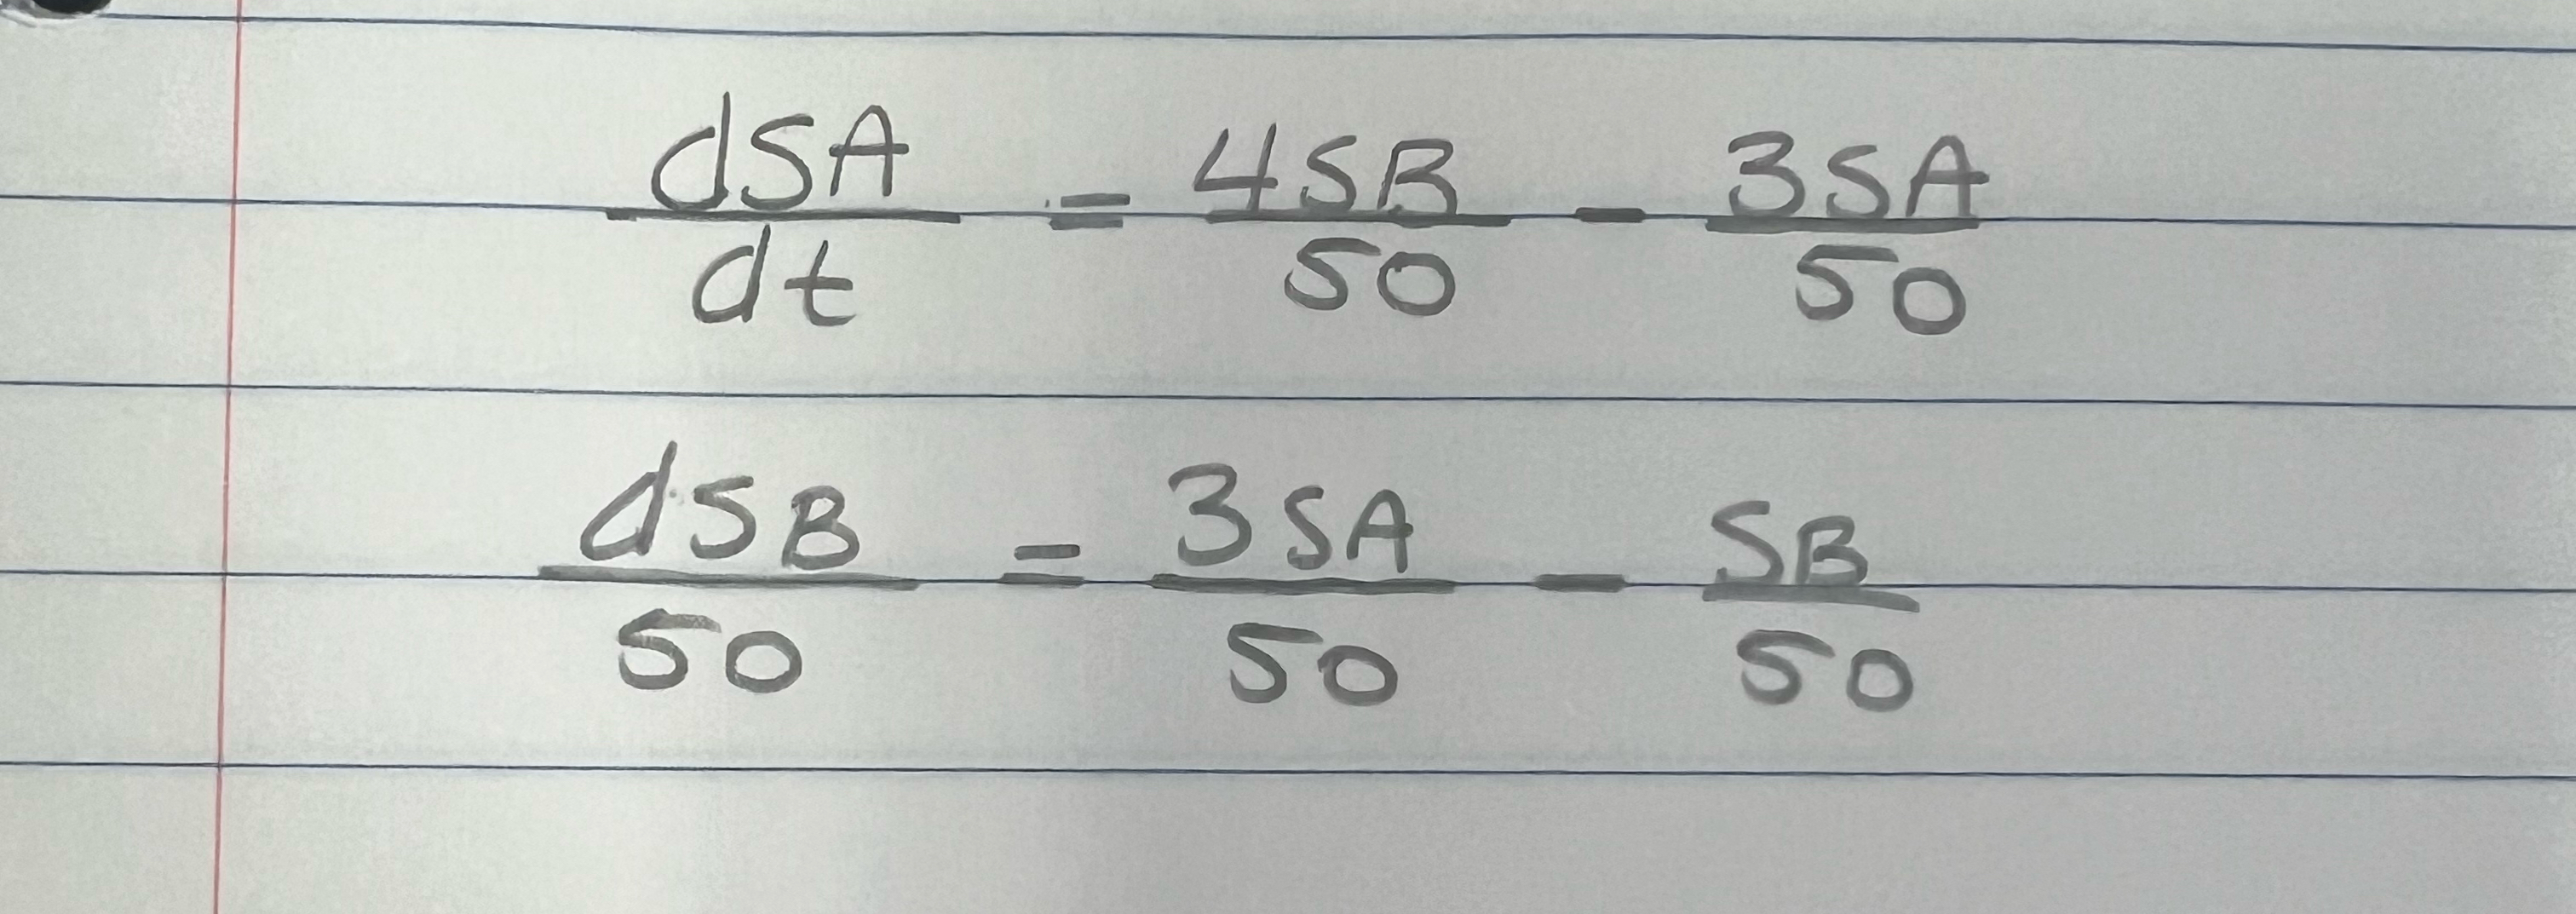 dSA/dt = 4SB/50 - 3SA/50
dSB/50 = 3SA/50 - SB/50